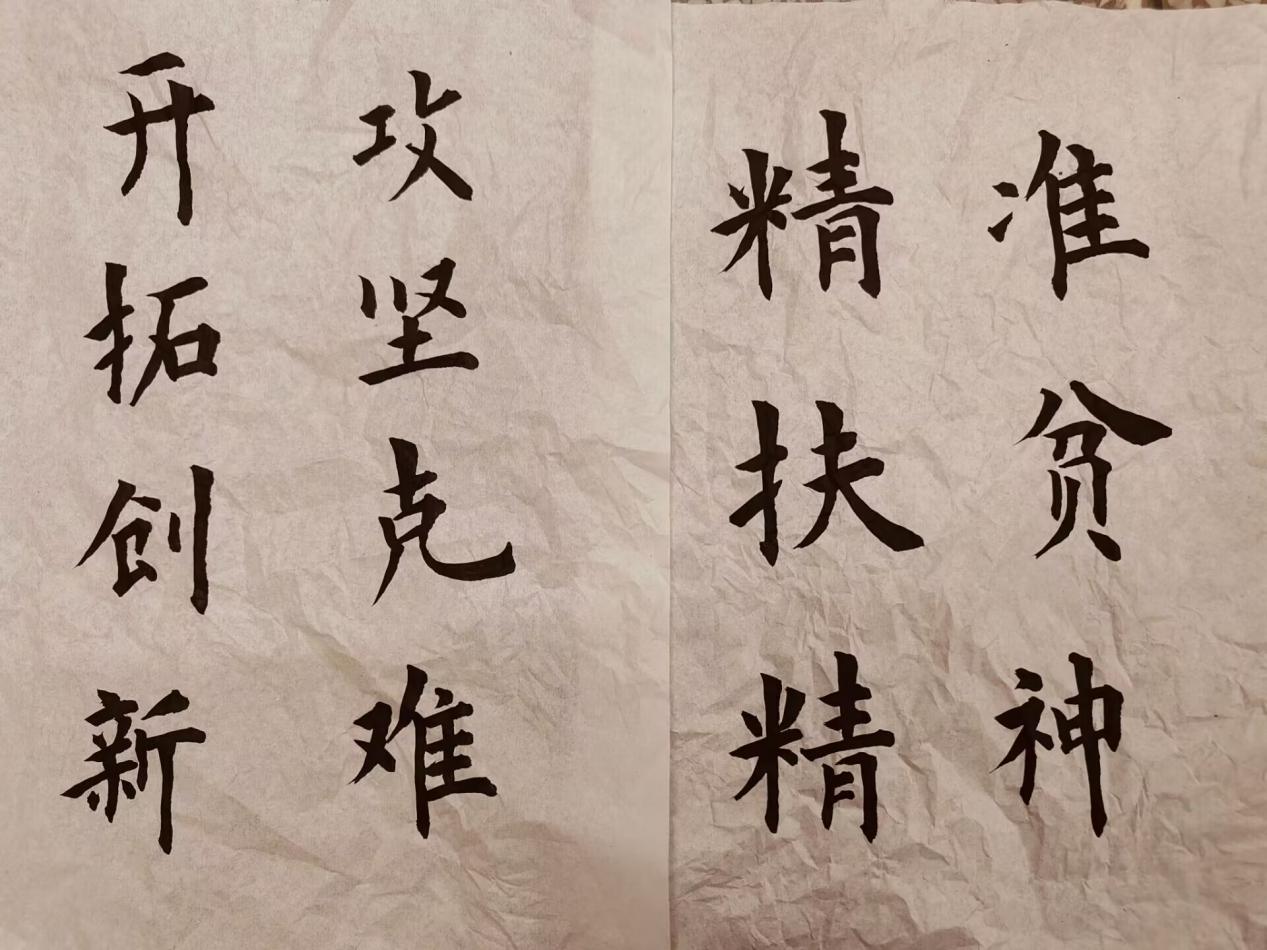 开拓创新
攻坚克难
精准
扶贫
精神